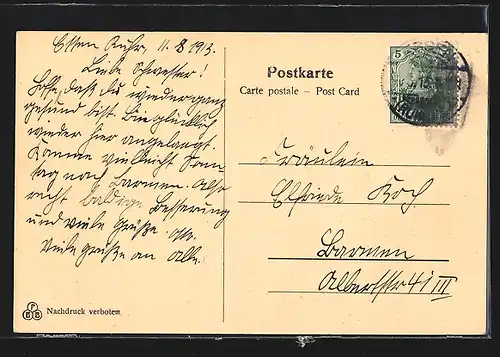 Essen Ruhr, 11.8 1913.
Liebe Schwester!
Hoffe, daß du wieder ganz
gesund bist. Bin glücklich
wieder hier angelangt.
Komme vielleicht Sonn
tag nach Barmen. Also
recht baldige Besserung
und viele Grüße Otto.
Viele grüße an Alle.
Postkarte
Carte postale – Post Card
5
Fräulein
Elfriede Koch
Barmen
Albertstr 41 III
Nachdruck verboten